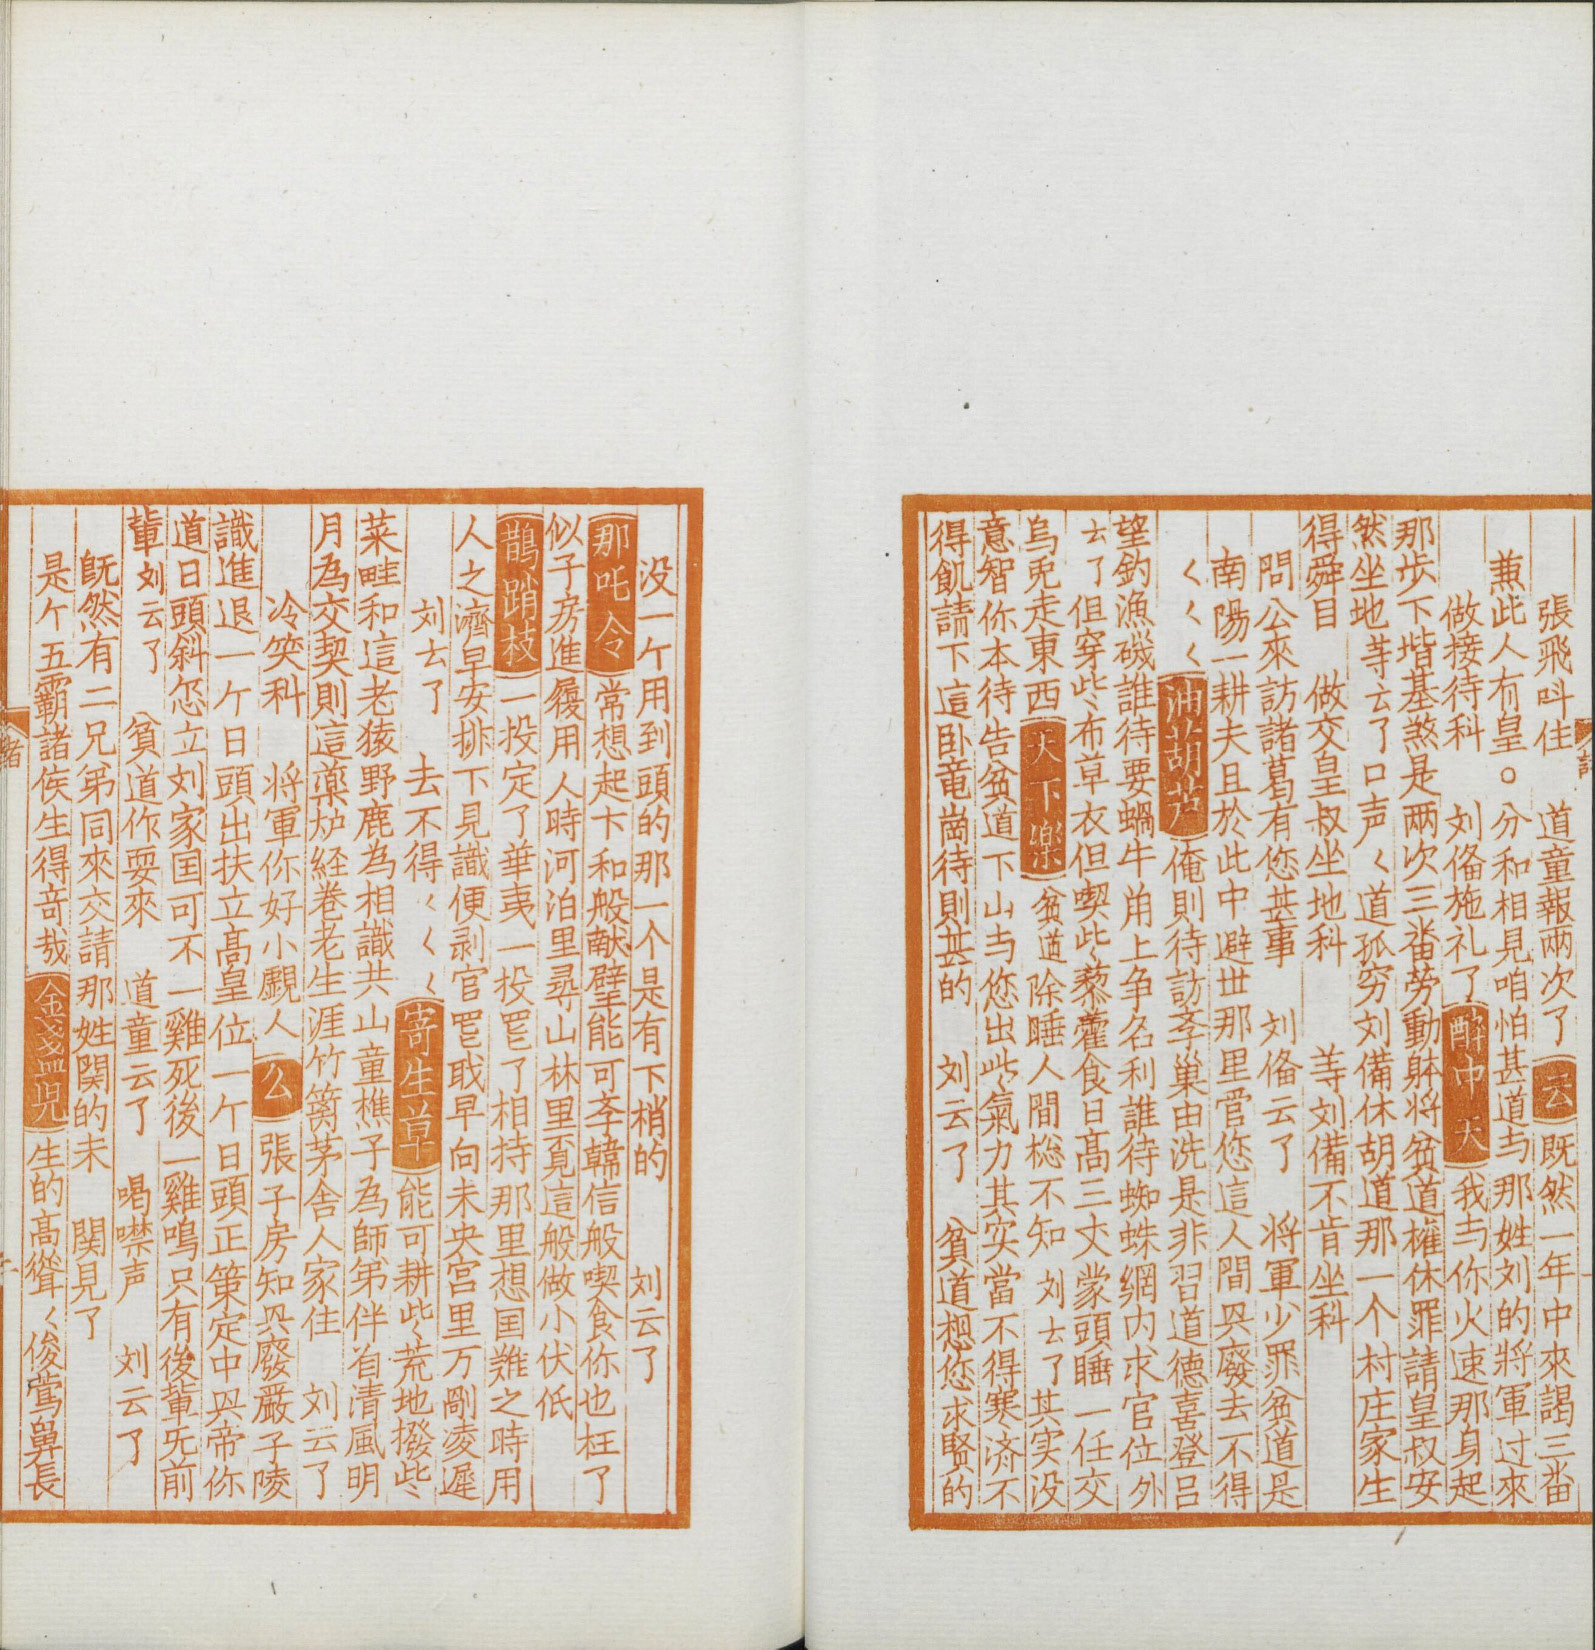 張飛呌住　道童報兩次了　云　既然一年中來謁三畨
蒹此人有皇○分和相見咱怕甚道与那姓刘的將軍过來
做接待科　刘俻施礼了　醉中天　我与你火速那身起
那步下堦基煞是两次三畨劳動躰将貧道權休罪請皇叔安
然坐地　䓁云了口声〱道孤穷刘備休胡道那一个村庄家生
得舜目　做交皇叔坐地科　䓁刘備不肯坐科
問公來訪諸葛有您甚事　刘俻云了　将軍少罪貧道是
南陽一耕夫且於此中避世那里管您這人間㒷廢去不得
〱〱〱　油葫芦　俺則待訪㝖巢由洗是非習道德喜登吕
望釣漁磯誰待要蝸牛角上争名利誰待蜘蛛網内求官位外
云了但穿些布草衣但喫些藜藿食日高三丈蒙頭睡一任交
烏兎走東西　天下樂　貧道除睡人間㧾不知　刘云了其実没
意智你本待告貧道下山与您出些氣力其实當不得寒済不
得飢請下這卧竜崗待則甚的　刘云了　貧道想您求賢的
没一个用到頭的那一个是有下梢的　刘云了
那吒令　常想起卞和般献璧能可㝖韓信般喫食你也枉了
似子房進履用人時河泊里尋山林里覔這般做小伏低
鵲踏枝　一投定了華夷一投罷了相持那里想国难之時用
人之濟早安排下見識便剥官罷戝早向未央宫里万剮凌遲
刘云了　去不得〱〱〱　寄生草　能可耕些荒地撥些
菜畦和這老猿野鹿為相識共山童樵子為師弟伴着清風明
月為交契則這藥炉経卷老生涯竹篱茅舍人家住　刘云了
冷笑科　将軍你好小覷人　么　張子房知㒷廢嚴子陵
識進退一个日頭出扶立高皇位一个日頭正策定中㒷帝你
道日頭斜怎立刘家国可不一雞死後一雞鳴只有後軰旡前
軰刘云了　貧道作耍來　道童云了　喝噤声　刘云了
旣然有二兄弟同來交請那姓関的未　関見了
是个五霸諸侯生得竒㢤　金盞児　生的高聳〱俊鶯鼻長